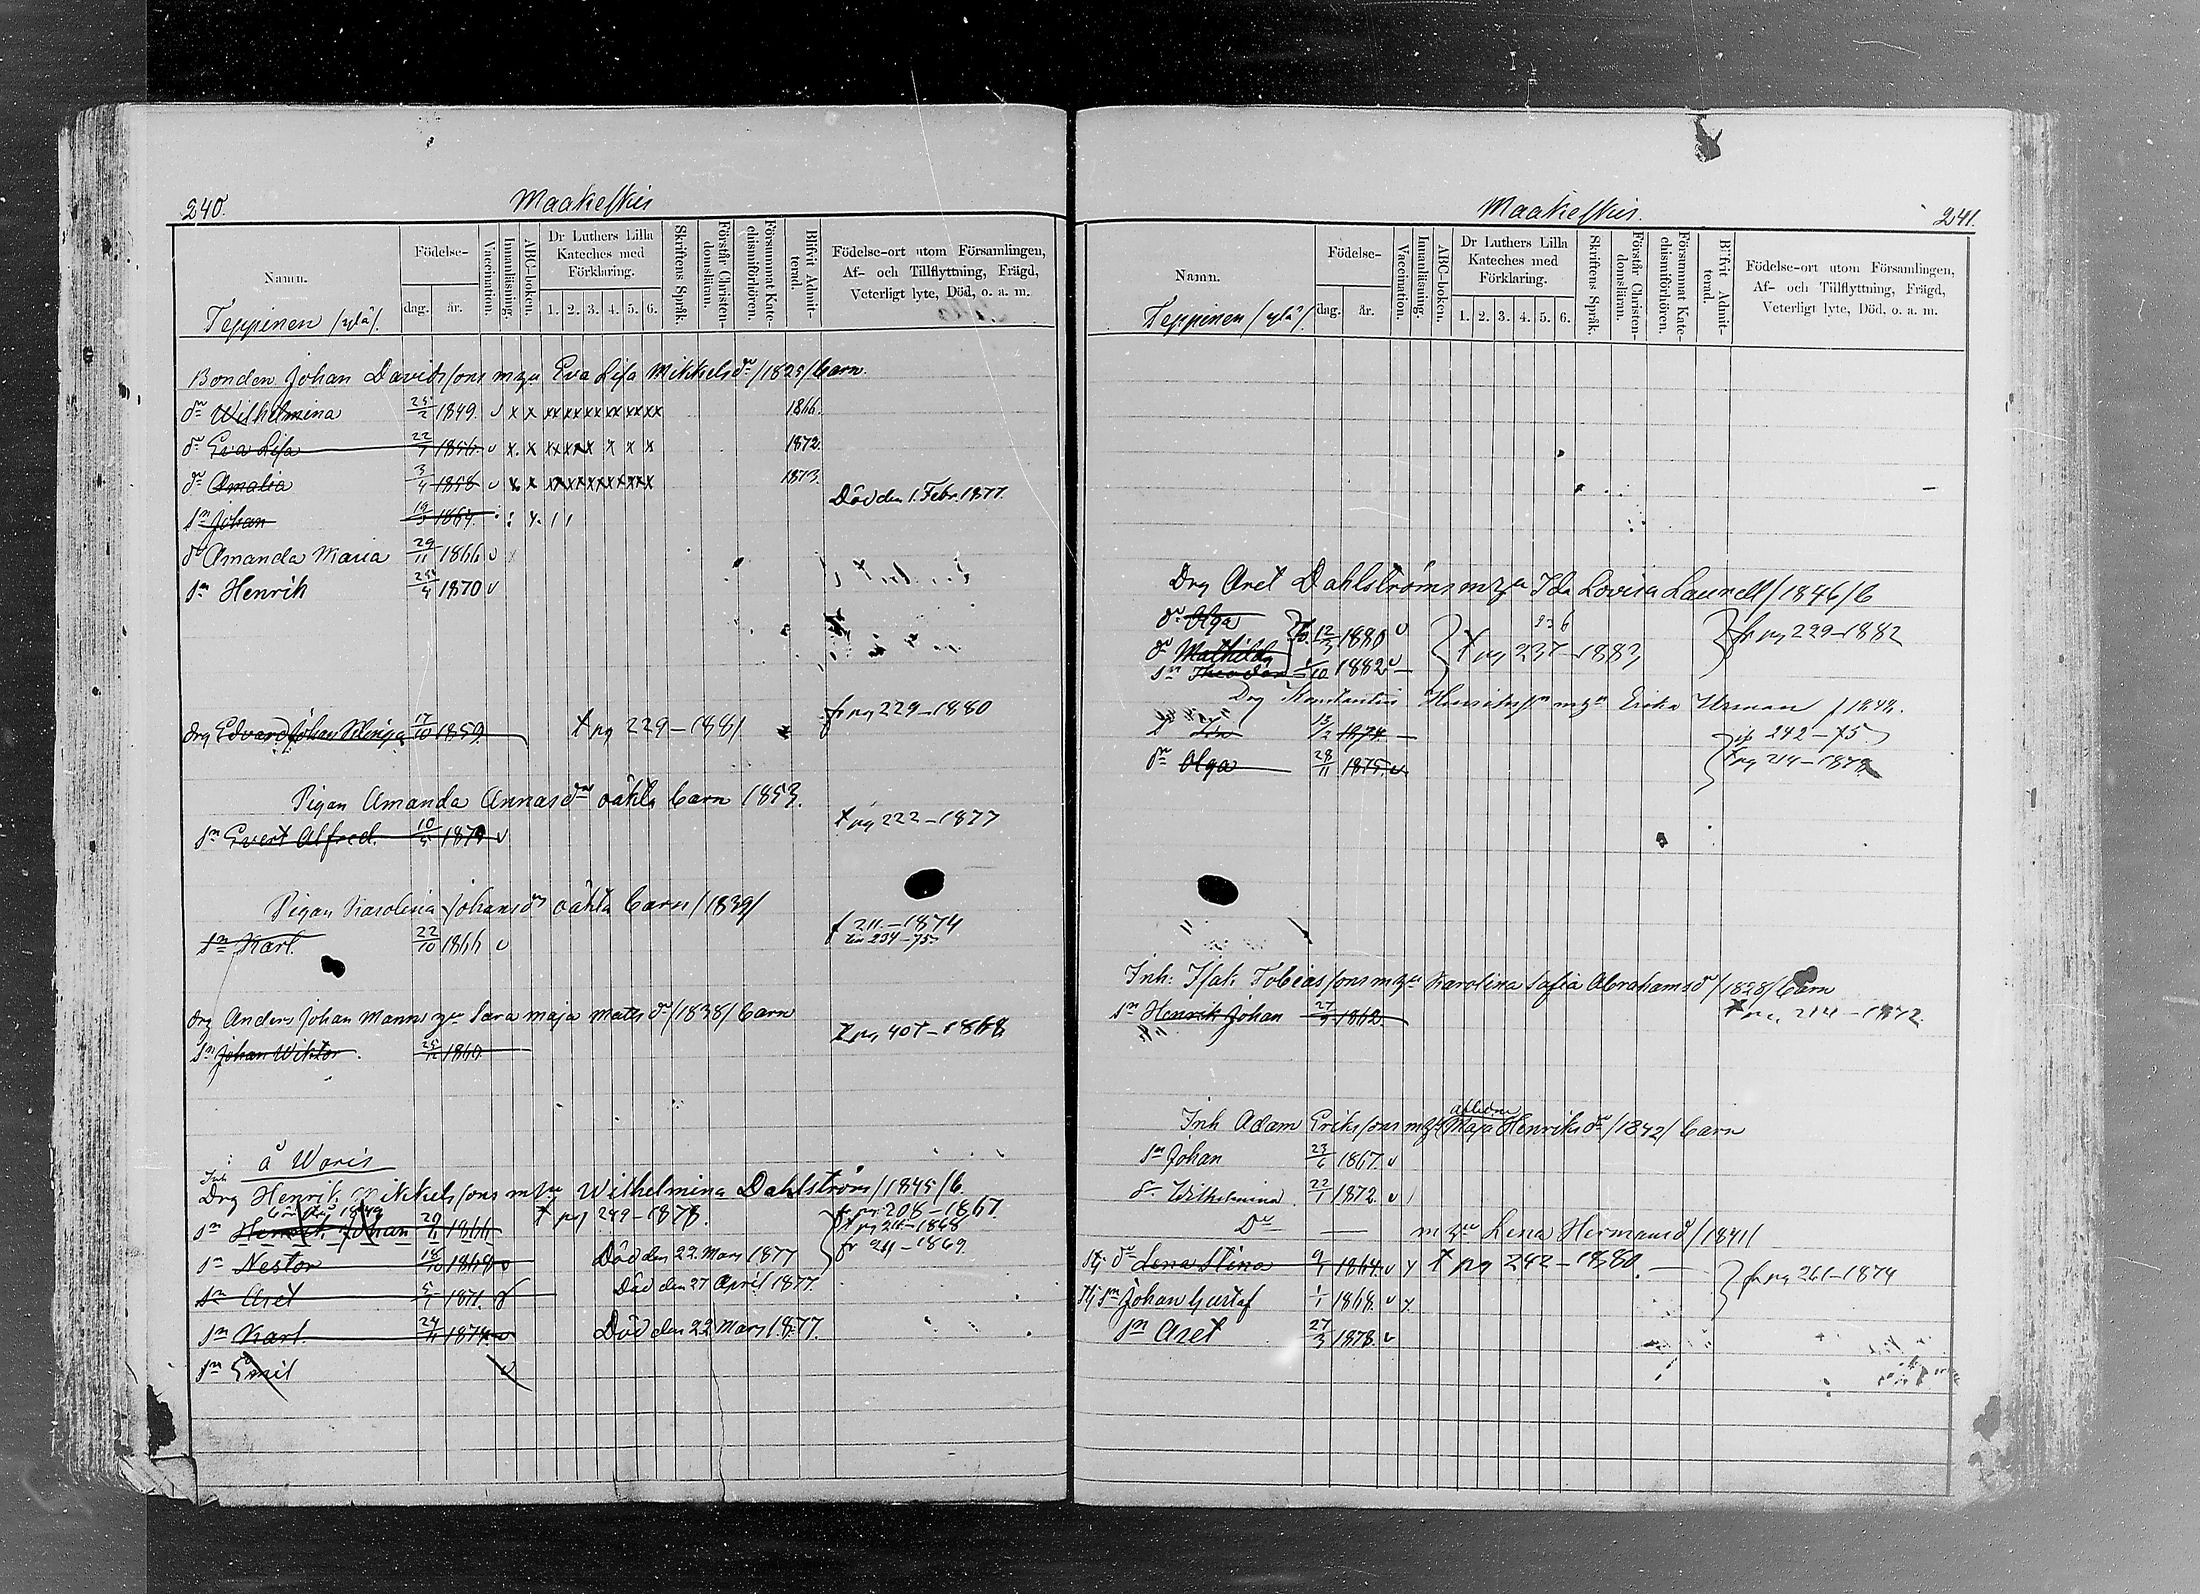 240.
Maakeskis
Namn.
Födelse-
dag.
år.
Vaccination.
Innanläsning.
ABC-boken.
Dr Luthers Lilla
Kateches med
Förklaring.
1. 2. 3. 4. 5. 6.
Skriftens Språk.
Förstår Christen-
domsläran.
Försummat Kate-
chismiförhören.
Blifvit Admit-
terad.
Födelse-ort utom Församlingen,
Af- och Tillflyttning, Frägd,
Veterligt lyte, Död, o. a. m.
Teppinen /ylä/.
Bonden Johan Davidssons m hu Eva Lisa Mikkelsdr /1825/ barn.
dr Wilhelmina 25/2 1849. v x x xx xx xx xx xx xx 1866.
dr Eva Lisa 22 1856. v x. x xx xx x x x 1872.
dr Amalia 3/4 1858 v x x xx xx xx xx xx 1873.
Död den 1. Febr. 1877.
sn Johan 19 1864.
dr Amanda Maria 29/11 1866 v
sn Henrik 25/4 1870 v
fr pg 229–1880
drg Edvard Johan 17/10 1859. t pg 229–1881
Pigan Amanda Annasdrs oäkta barn 1853.
t pg 222–1877
sn Evert Alfred. 10/5 187 v
Pigan Karolina Johansdrs oäkta barn /1839/
f 211–1874
234–75
sn Karl. 22/10 1866 v
drg Anders Johan Manns hu Sara Maja Matsdr /1838/ barn
t pg 407–1868
sn Johan Wiktor. 25/12 1860
å Waris
Inh
Drg Henrik Mikkelssons m hu Wilhelmina Dahlström /1845/ b.
t pg 249–1878.
fr pg 208–1867
sn Henrik Johan 20 1866
t pg 211–1868
sn Nestor 18/10 1869 v Död den 22. Mars 1877
fr 211–1869
sn Axel 5 1871. v Död den 27 April 1877.
sn Karl 24 1874. v Död den 22 Mars 1877.
sn Emil v
Maakeskis.
241.
Namn.
Födelse-
dag.
år.
Vaccination.
Innanläsning.
ABC-boken.
Dr Luthers Lilla
Kateches med
Förklaring.
1. 2. 3. 4. 5. 6.
Skriftens Språk.
Förstår Christen-
domsläran.
Försummat Kate-
chismiförhören.
Blifvit Admit-
terad.
Födelse-ort utom Församlingen,
Af- och Tillflyttning, Frägd,
Veterligt lyte, Död, o. a. m.
Teppinen /ylä/.
Drg Axel Dahlströms m hu Ida Lovisa Laurell /1846/ b
dr Olga
236
fr pg 229–1882
dr Mathilda 12/3 1880 v t pg 237–1883
sn Theodor 1/10 1882 v
Drg Konstantin Henrikssn m hu Erika Urman /1843.
13/2 1874.
242–75
dr Olga 28/11 1875. v
t pg 214–1878
Inh: Isak Tobiassons m hu Karolina Sofia Abrahamsdr /1828/ barn
sn Henrik Johan 27 1862
t pg 214–1872.
afledne
Inh Adam Erikssons m hu Maja Henriksdr /1842/ barn
sn Johan 23/6 1867. v
dr Wilhelmina 22/1 1872. v
Do — m hu Lena Hermansd /1841/
stj dr Lena Stina 9 1864. v y t pg 242–1880. —
fr pg 261–1874
stj sn Johan Gustaf 1/1 1868. v y
sn Axel 27/3 1878. v